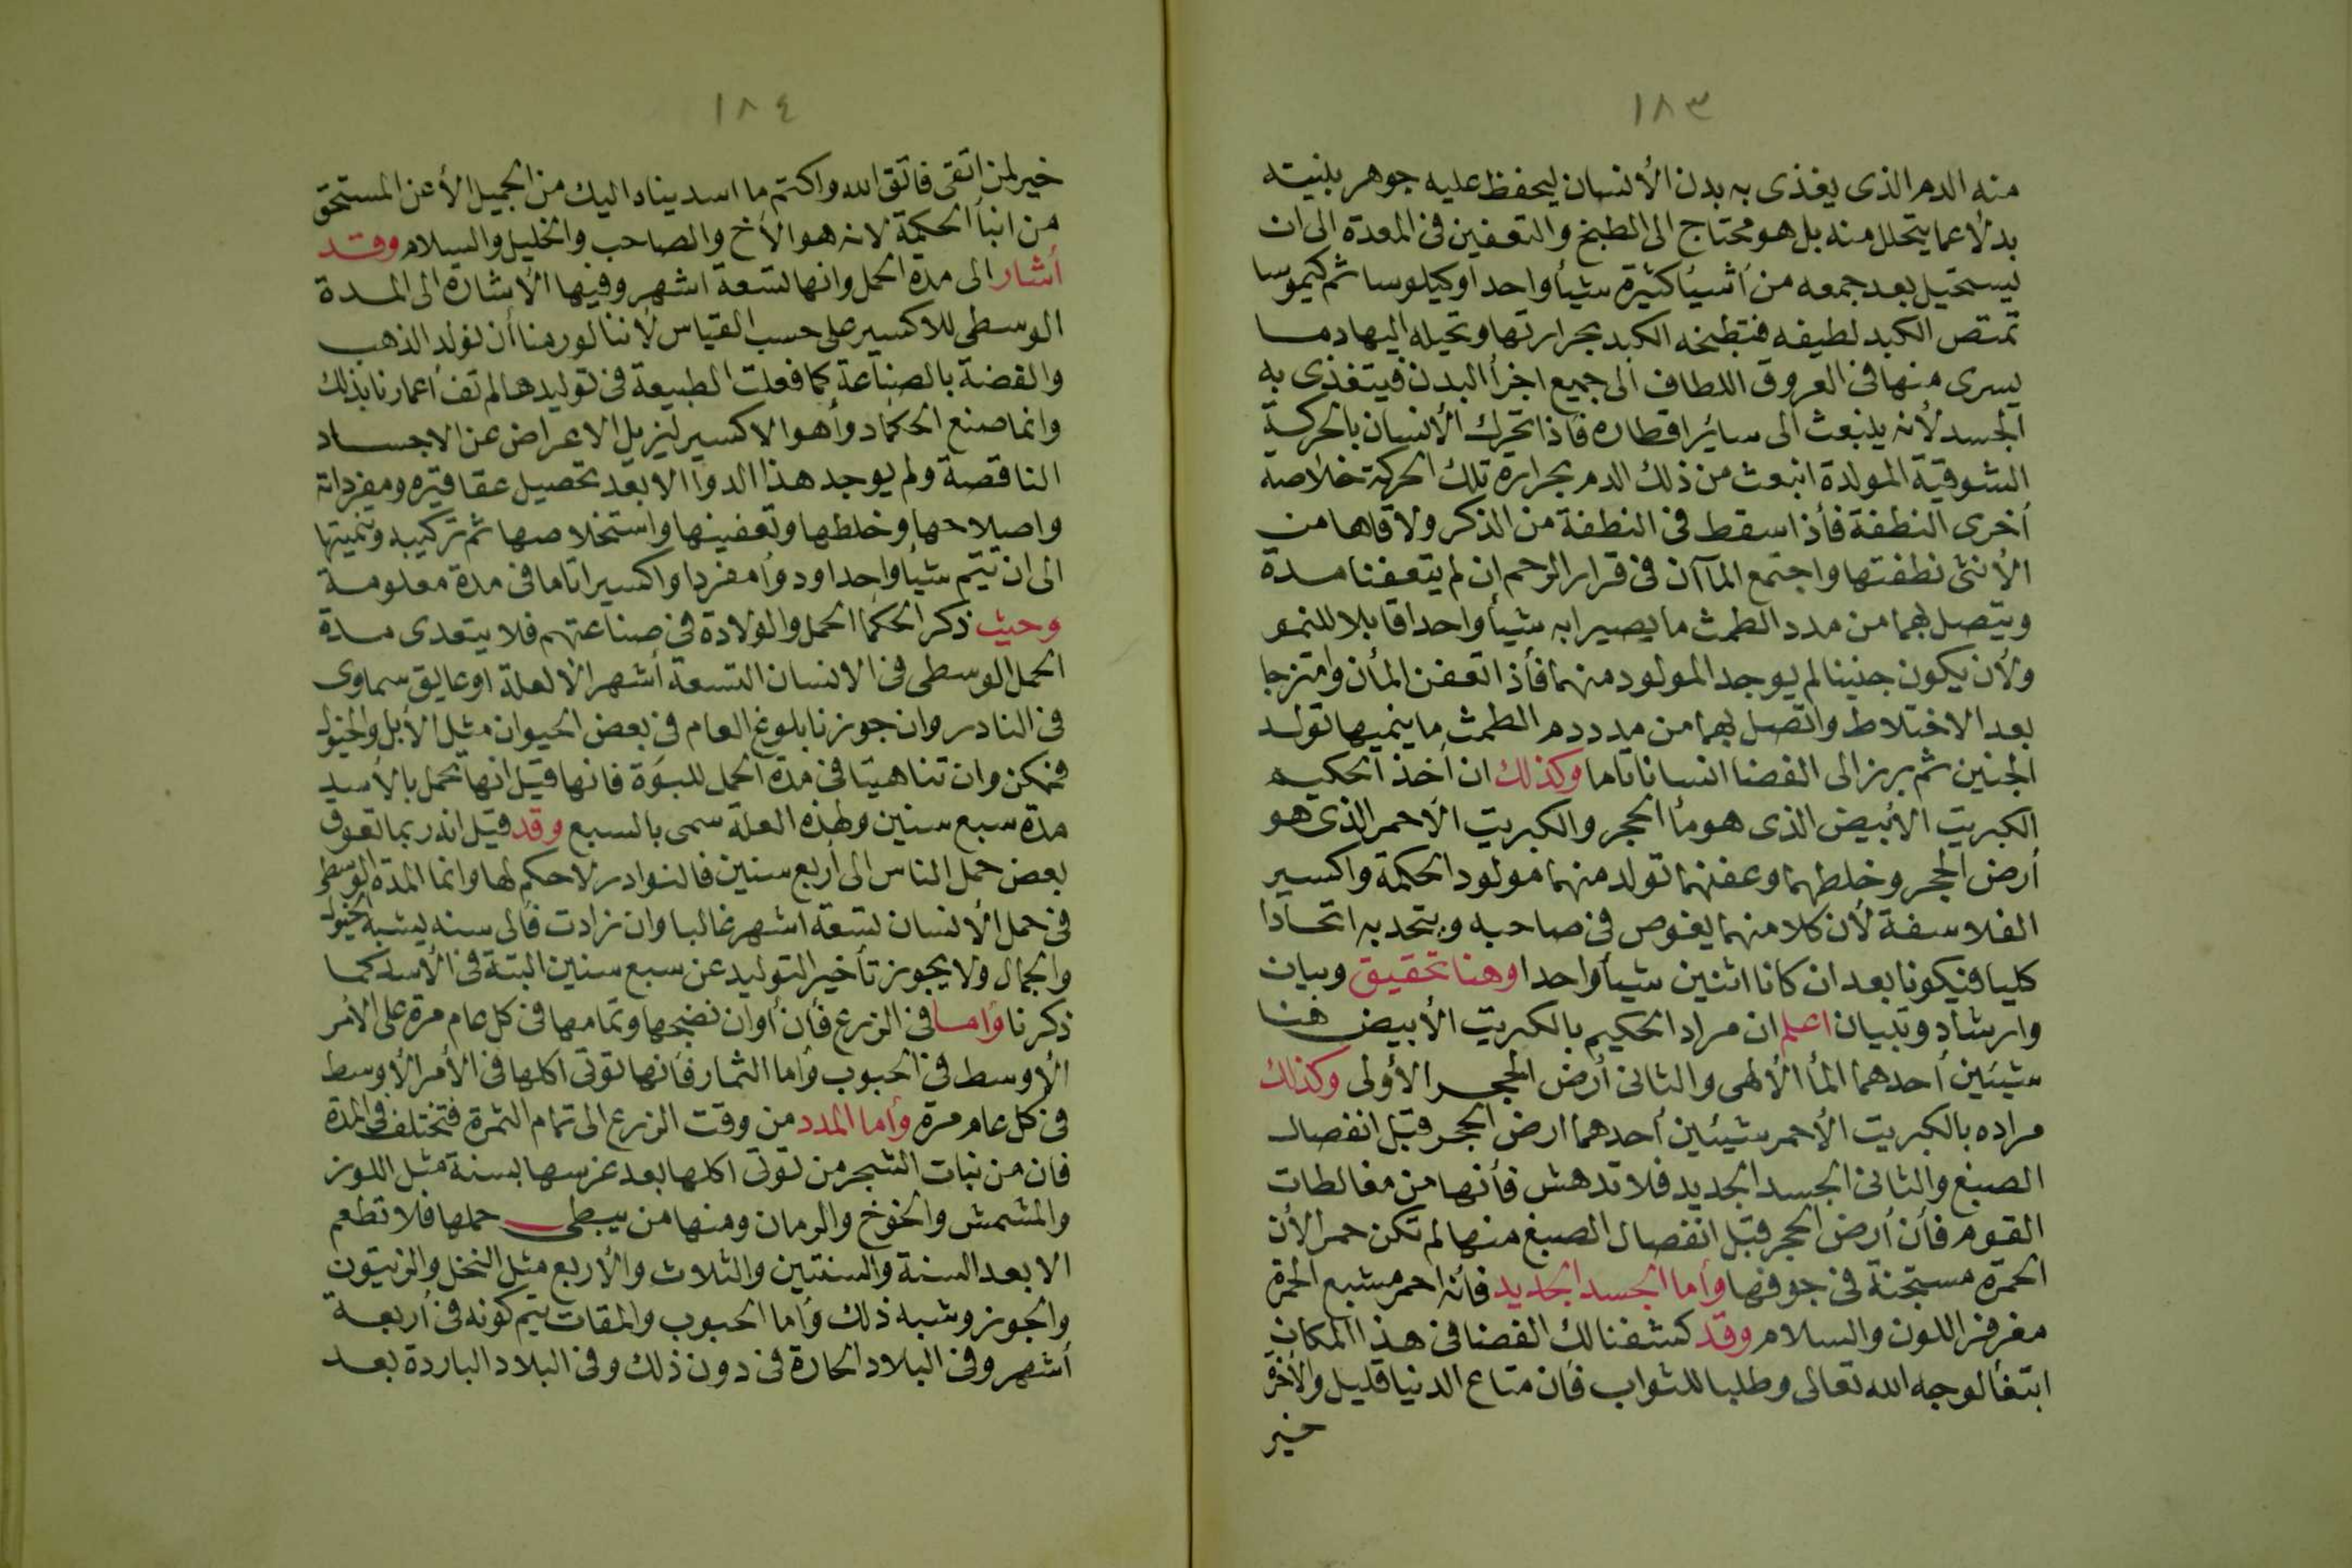 ١٨٣
منه الدم الذى يغذى به بدن الأنسان ليحفظ عليه جوهر بنيته
بدلا عما يتحلل منه بل هو محتاج الى الطبخ والتعفين فى المعدة الى ان
يستحيل بعد جمعه من أشيأ كثيرة شيأ واحدا وكيلوسا ثم كيموسا
تمتص الكبد لطيفه فتطبخه الكبد بحرارتها وتحيله اليها دما
يسرى منها فى العروق اللطاف الى جميع اجزأ البدن فيتغذى به
الجسد لأنه ينبعث الى سائر اقطاره فاذا تحرك الأنسان بالحركة
الشوقية المولدة انبعث من ذلك الدم بحرارة تلك الحركة خلاصه
أخرى النطفة فأذا سقط فى النطفة من الذكر ولاقاها من
الأنثى نطفتها واجتمع المآآن فى قرار الرحم ان لم يتعفنا مدة
ويتصل بهما من مدد الطمث ما يصيرا به شيأ واحدا قابلا للنمو
ولأن يكون جنينا لم يوجد المولود منهما فأذا تعفن المأن وامتزجا
بعد الاختلاط واتصل بهما من مدد دم الطمث ما ينميها تولد
الجنين ثم برز الى الفضا انسانا تاما وكذلك ان أخذ الحكيم
الكبريت الأبيض الذى هو مأ الحجر والكبريت الأحمر الذى هو
أرض الحجر وخلطهما وعفنهما تولد منهما مولود الحكمة واكسير
الفلاسفة لأن كلا منهما يغوص فى صاحبه ويتحد به اتحادا
كليا فيكونا بعد ان كانا اثنين شيأ واحدا وهنا تحقيق وبيان
وارشاد وتبيان اعلم ان مراد الحكيم بالكبريت الأبيض هنا
شيئين أحدهما المأ الألهى والثانى أرض الحجر الأولى وكذلك
مراده بالكبريت الأحمر شيئين أحدهما ارض الحجر قبل انفصال
الصبغ والثانى الجسد الجديد فلا تدهش فأنها من مغالطات
القوم فأن أرض الحجر قبل انفصال الصبغ منها لم تكن حمرا لأن
الحمرة مستجنة فى جوفها وأما الجسد الجديد فأنه احمر مشبع الحمرة
مفرفز اللون والسلام وقد كشفنا لك الفضا فى هذا المكان
ابتغأ لوجه الله تعالى وطلبا للثواب فأن متاع الدنيا قليل والأخرة
خير
١٨٤
خير لمن اتقى فاتق الله واكتم ما اسديناه اليك من الجميل الأ عن المستحق
من ابنأ الحكمة لانه هو الأخ والصاحب والخليل والسلام وقد
أشار الى مدة الحمل وانها تسعة اشهر وفيها الأشارة الى المدة
الوسطى للاكسير على حسب القياس لأننا لو رمنا أن نولد الذهب
والفضة بالصناعة كما فعلت الطبيعة فى توليدها لم تف أعمارنا بذلك
وانما صنع الحكما دوأ هو الاكسير ليزيل الاعراض عن الاجساد
الناقصة ولم يوجد هذا الدوا الا بعد تحصيل عقاقيره ومفرداته
واصلاحها وخلطها وتعفينها واستخلاصها ثم تركيبه وتنميتها
الى ان تتم شيأ واحدا ودوأ مفردا واكسيرا تاما فى مدة معلومة
وحيث ذكر الحكما الحمل والولادة فى صناعتهم فلا يتعدى مدة
الحمل الوسطى فى الانسان التسعة أشهر الا لعلة او عايق سماوى
فى النادر وان جوزنا بلوغ العام فى بعض الحيوان مثل الأبل والخيول
فممكن وان تناهيتا فى مدة الحمل للبوة فانها قيل انها تحمل بالأسد
مدة سبع سنين ولهذه العلة سمى بالسبع وقد قيل انه ربما تعوق
بعض حمل الناس الى أربع سنين فالنوادر لا حكم لها وانما المدة الوسطى
فى حمل الأنسان تسعة اشهر غالبا وان زادت فألى سنه يشبه الخيول
والجمال ولا يجوز تأخير التوليد عن سبع سنين البتة فى الأسد كما
ذكرنا وأما فى الزرع فأن أوان نضجها وتمامها فى كل عام مرة على الأمر
الأوسط فى الحبوب وأما الثمار فأنها تؤتى اكلها فى الأمر الأوسط
فى كل عام مرة وأما المدد من وقت الزرع الى تمام الثمرة فتختلف فى المدة
فان من نبات الشجر من تؤتى اكلها بعد غرسها بسنة مثل اللوز
والمشمش والخوخ والرمان ومنها من يبطى حملها فلا تطعم
الا بعد السنة والسنتين والثلاث والأربع مثل النخل والزيتون
والجوز وشبه ذلك وأما الحبوب والمقات يتم كونه فى أربعة
أشهر وفى البلاد الحارة فى دون ذلك وفى البلاد الباردة بعد